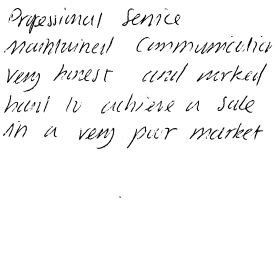 Professional Service
maintained Communication
very honest and worked
hard to achieve a sale
in a very poor market